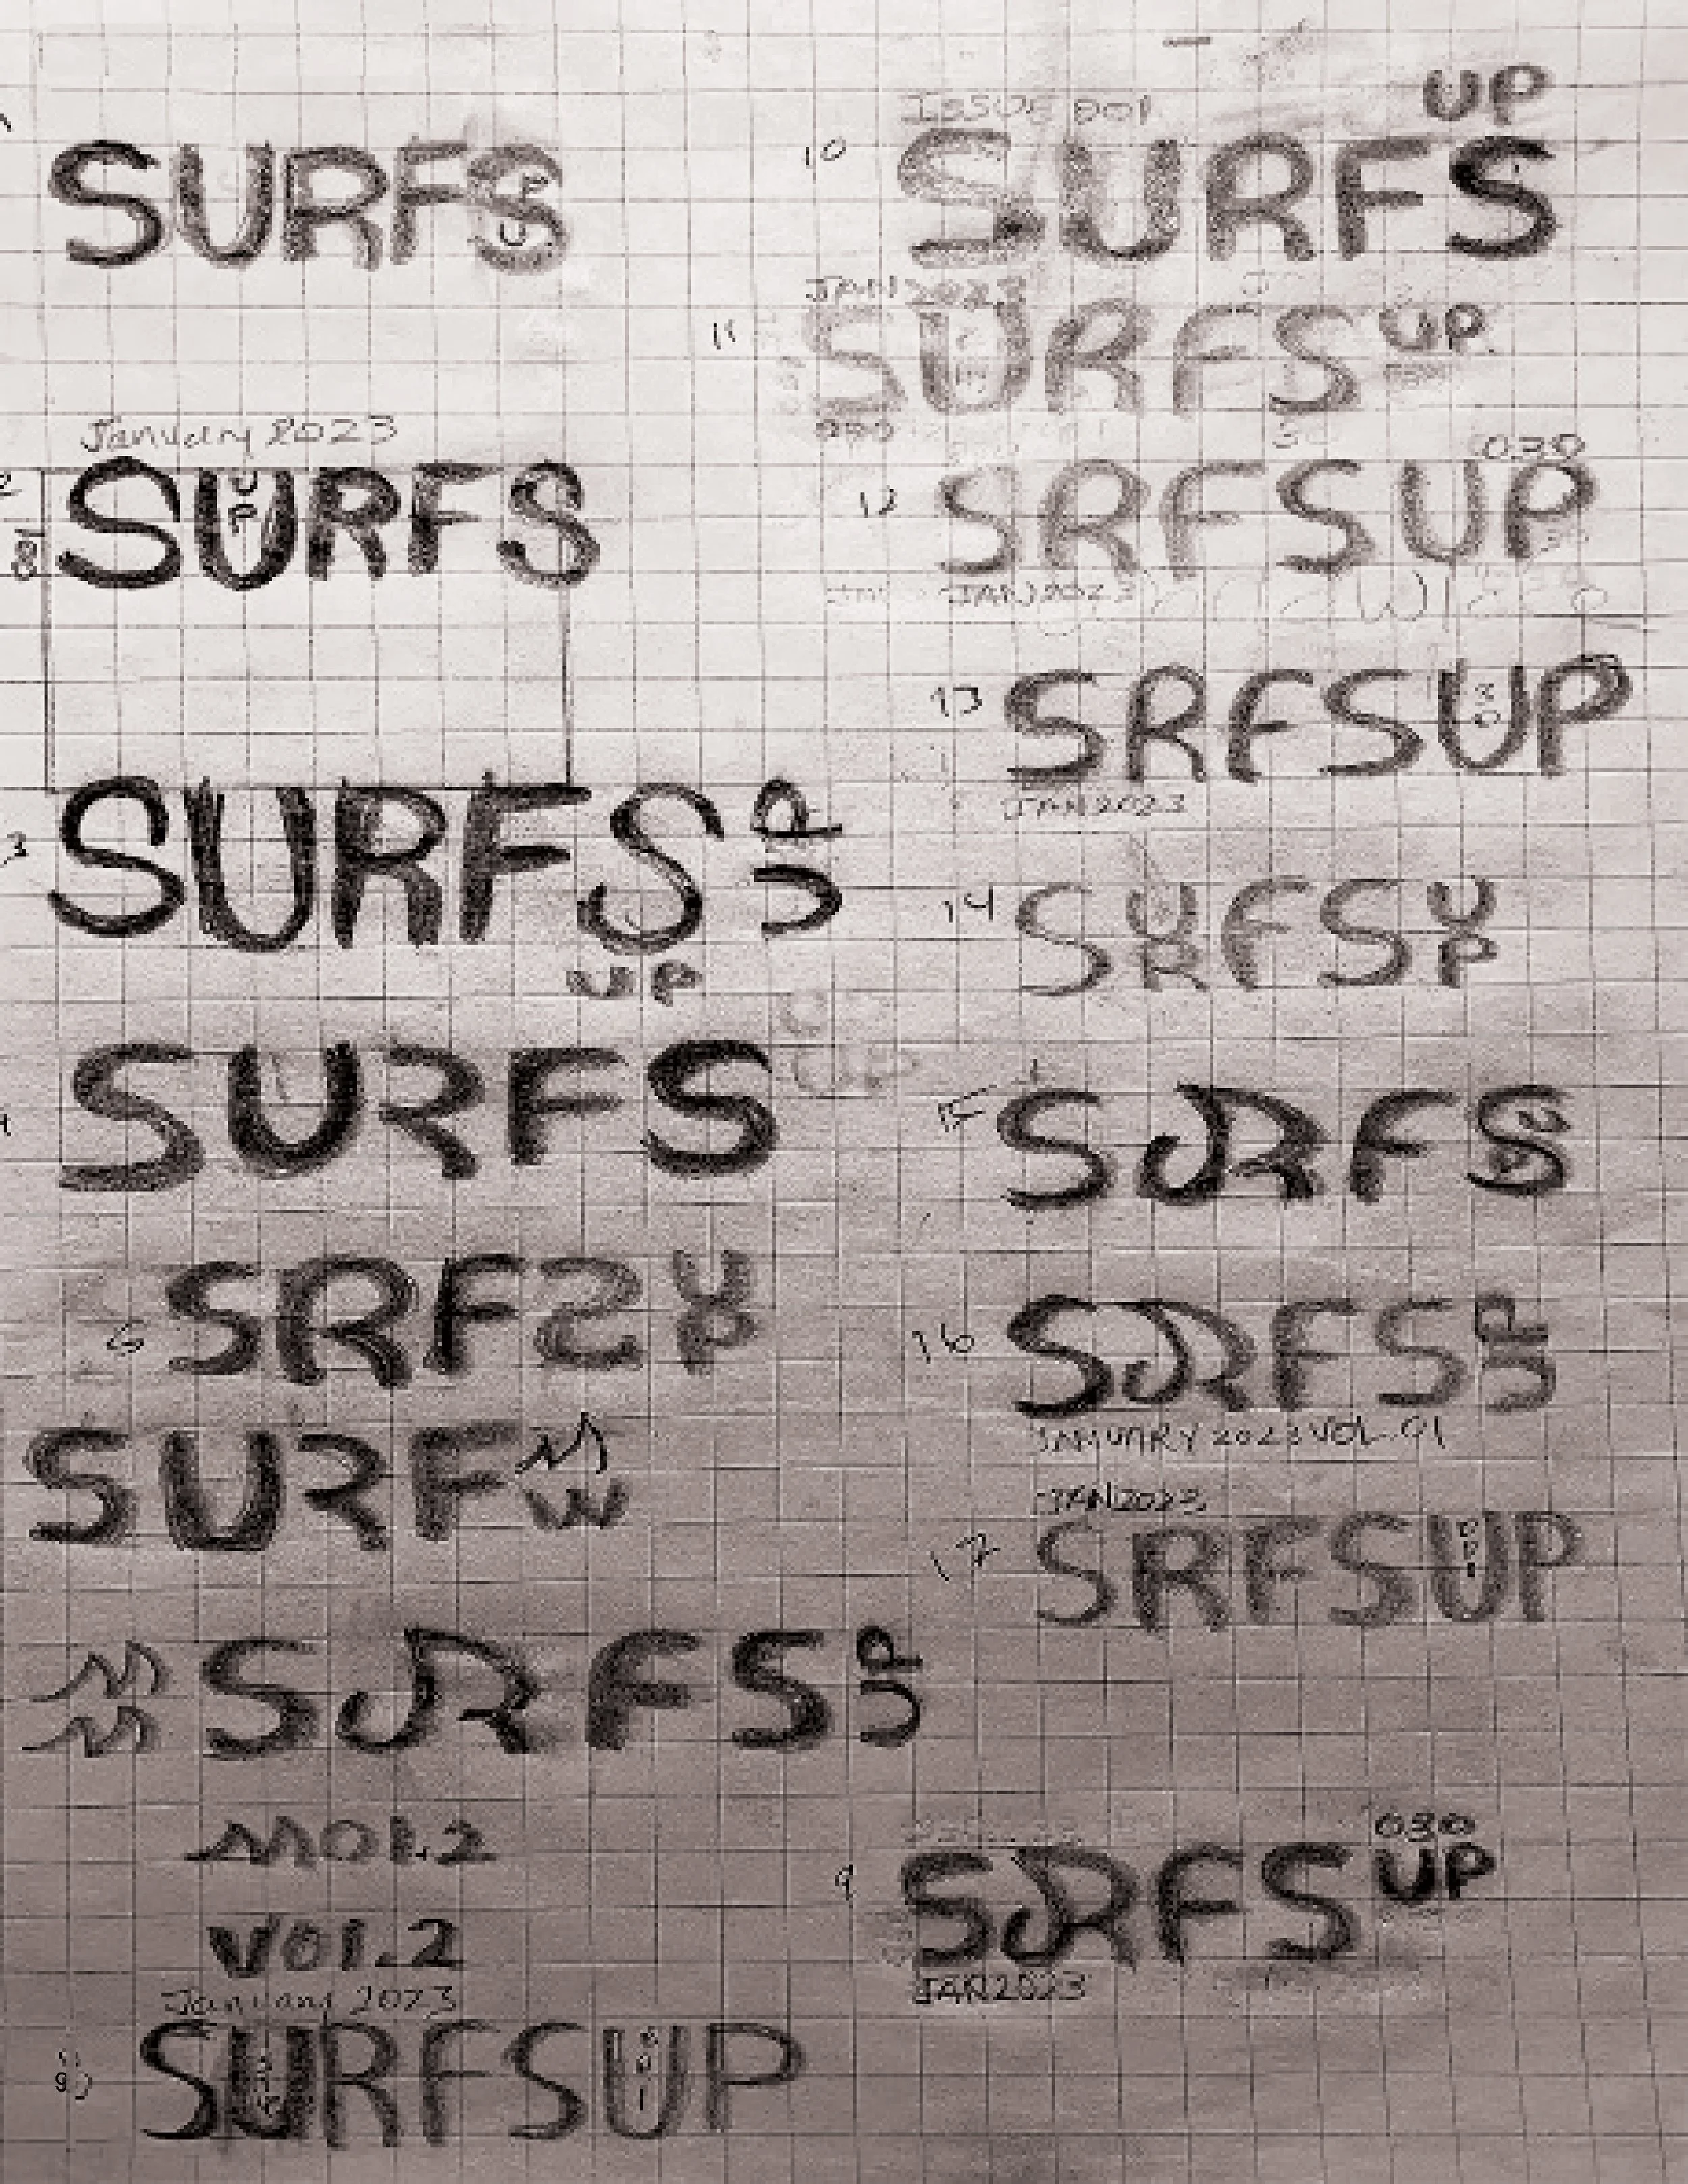 SURFS
UP
January 2023
2
001
SURFS
UP
3
SURFS UP
UP
4
SURFS
UP
5
SRFS UP
SURF
SURFS UP
VOL.2
January 2023
SURFSUP
001
UP
ISSUE 001
10
SURFS
JAN 2023
11
SURFS UP
030
12
SRFSUP
JAN 2023
13
SRFSUP
30
JAN 2023
14
SURFS UP
15
SURFS
16
SURFS UP
JANUARY 2023 VOL. 01
JAN 2023
17
SRFSUP
001
030
9
SURFS UP
JAN 2023